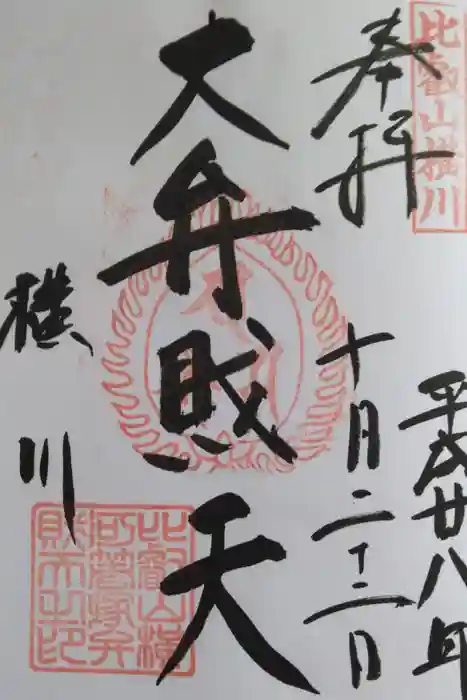 比叡山横川
奉拝
平成廿八年
十月二十二日
大弁財天
横川
比叡山横
川箸塚弁
財天之印